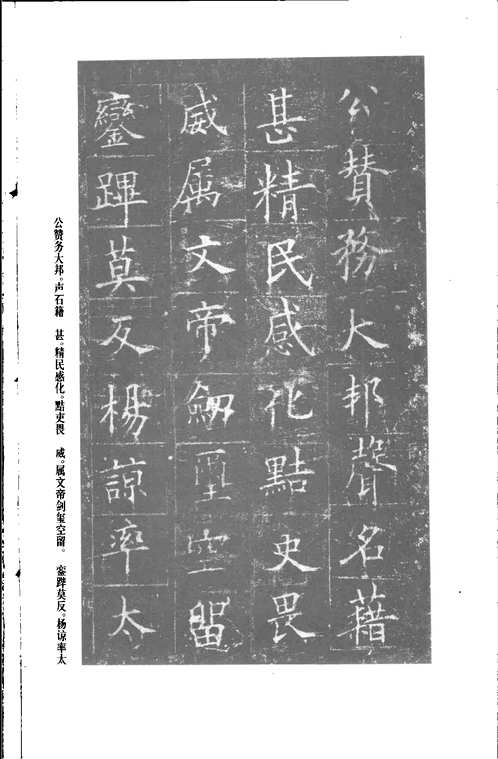 公贊務大邦聲名藉
甚精民感化點吏畏
威属文帝劒璽空留
鑾蹕莫反楊諒率太
公赞务大邦。声石籍 甚。精民感化。黠吏畏 威。属文帝剑玺空留。 銮跸莫反。杨谅率太